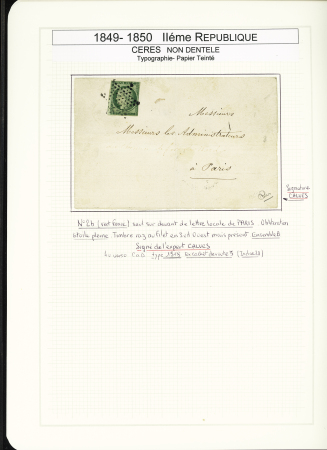 1849- 1850 IIéme REPUBLIQUE
CERES NON DENTELE
Typographie- Papier Teinté
Messieurs
Messieurs les Administrateurs
à Paris
Signature
CALVES
N°2b (vert foncé) seul sur devant de lettre locale de PARIS Oblitération
étoile pleine. Timbre au filet en mais présent
Signé de l'expert CALVES
Au verso C.a.D type 1518